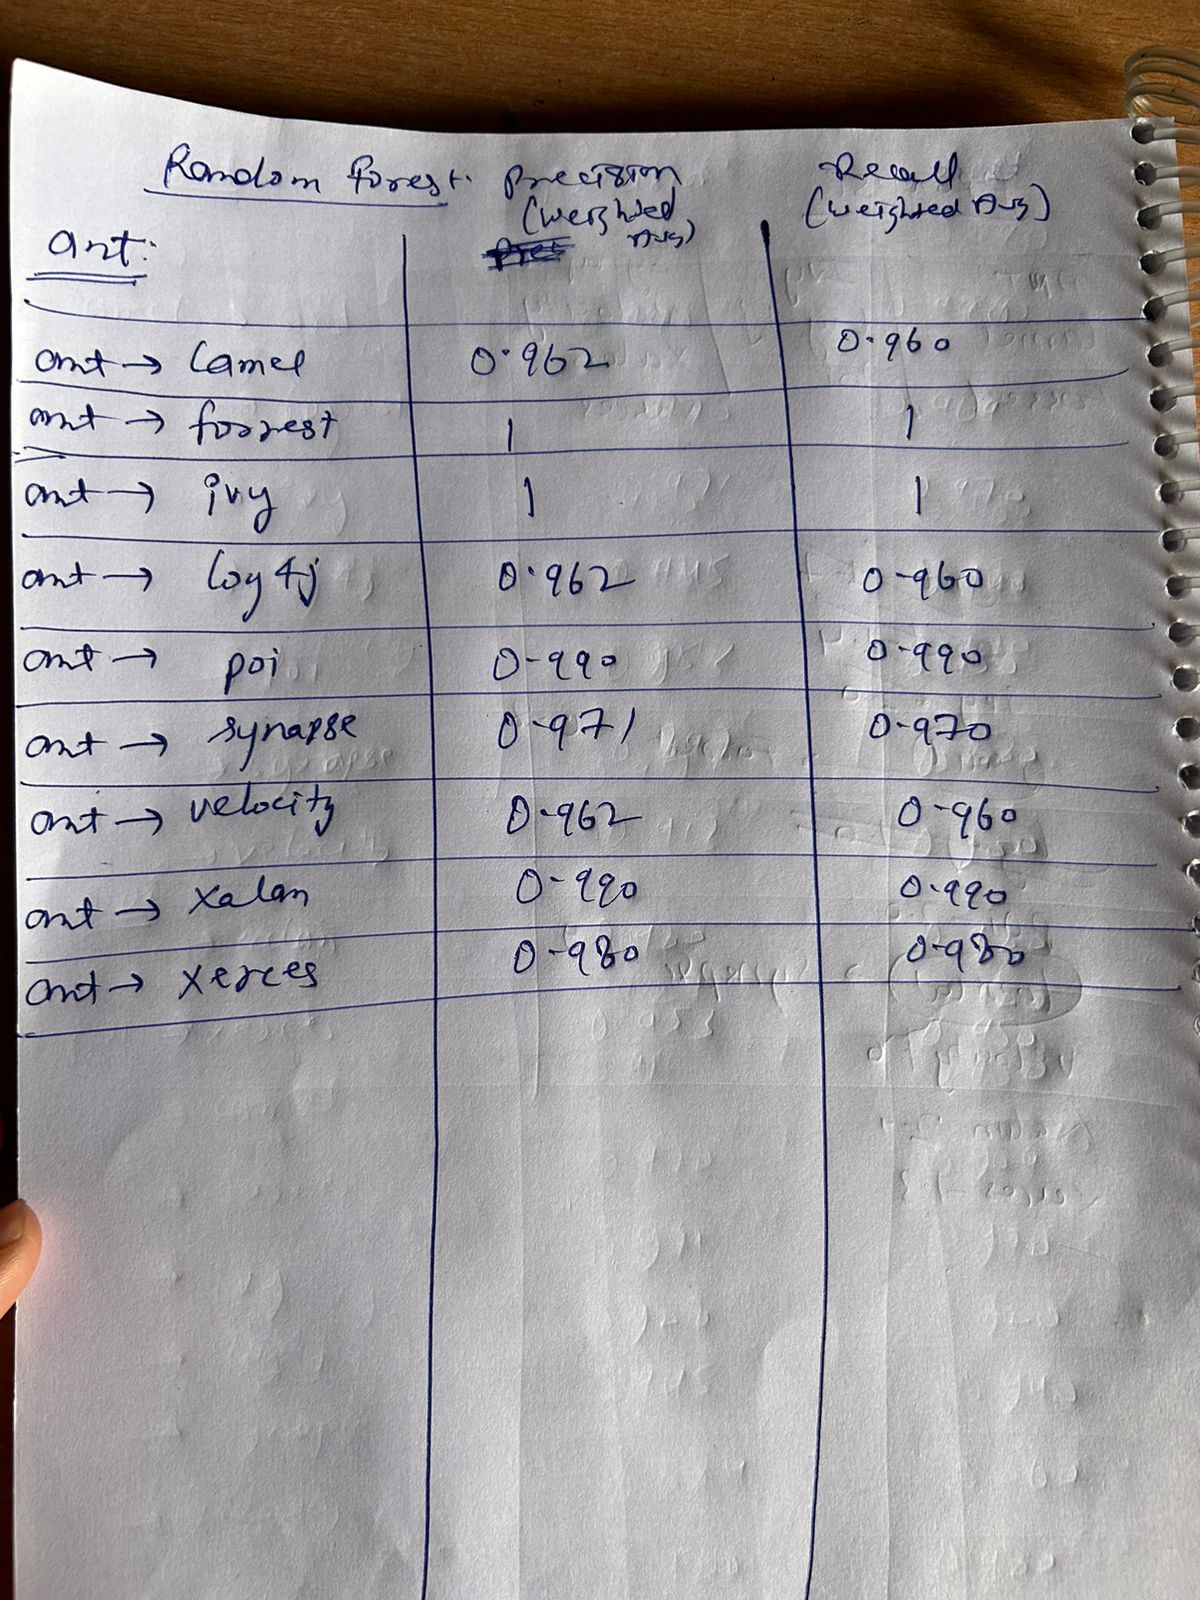 Random forest: Precision Recall
(weighted Avg) (weighted Avg)
ant:
ant → Camel 0.962 0.960
ant → forrest 1 1
ant → ivy 1 1
ant → log4j 0.962 0.960
ant → poi 0.990 0.990
ant → synapse 0.971 0.970
ant → velocity 0.962 0.960
ant → xalan 0.990 0.990
ant → xerces 0.980 0.980